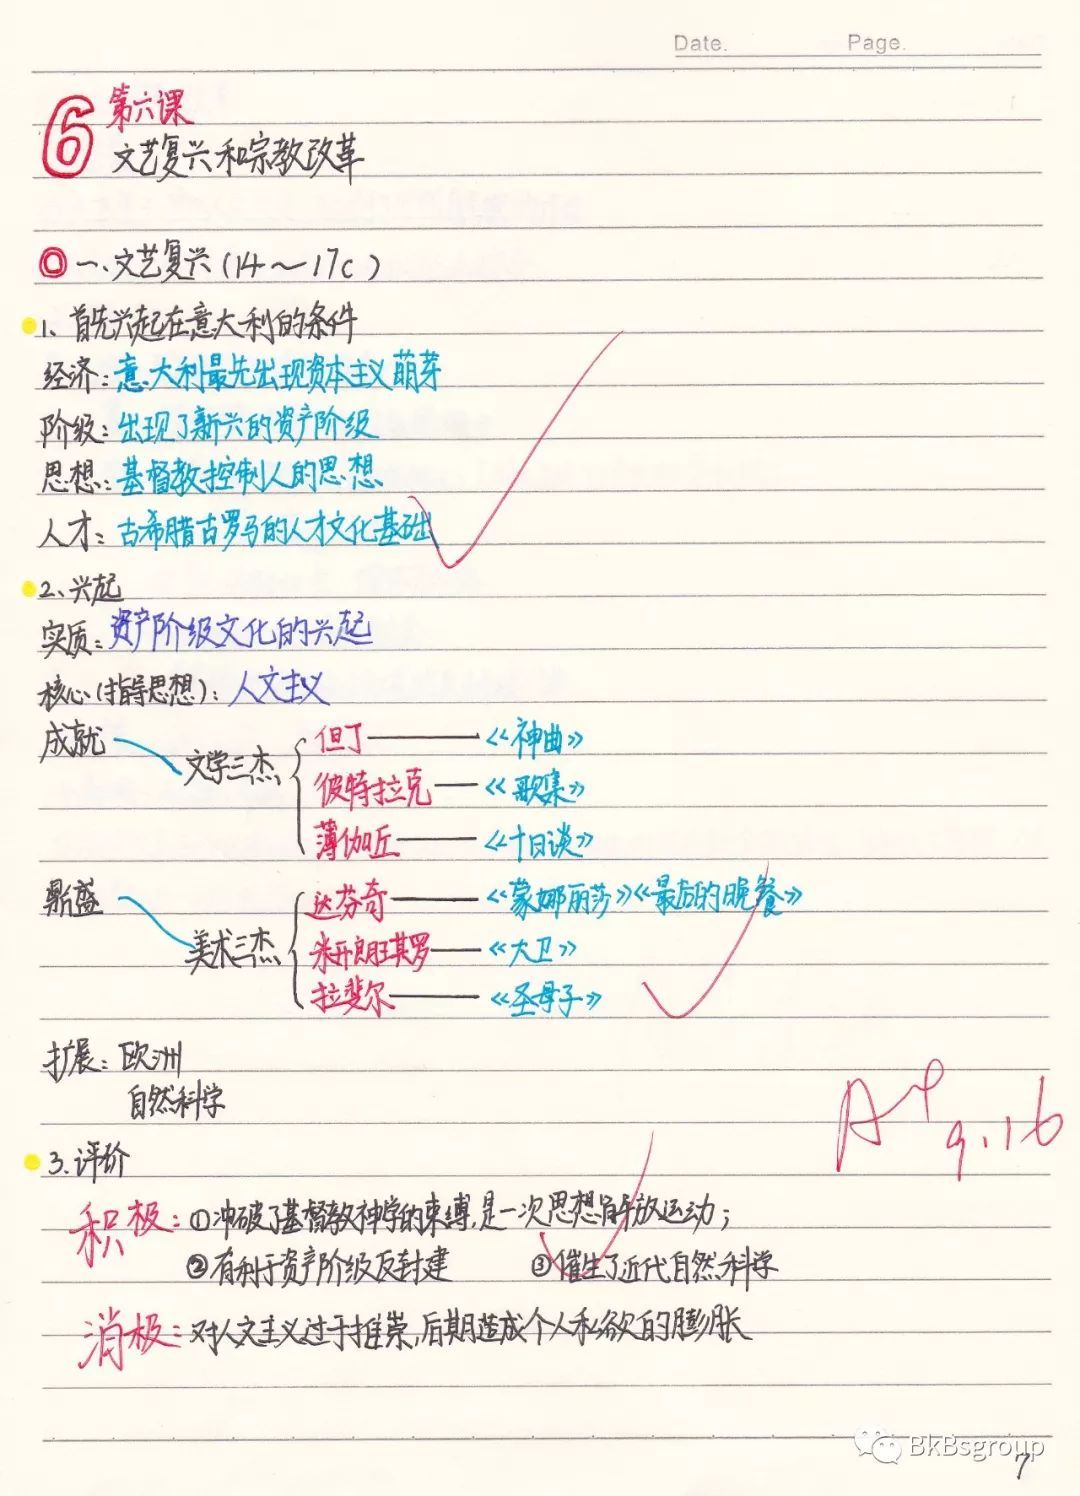 Date. Page.
6 第六课
文艺复兴和宗教改革
一、文艺复兴(14～17c)
1、首先兴起在意大利的条件
经济:意大利最先出现资本主义萌芽
阶级:出现了新兴的资产阶级
思想:基督教控制人的思想
人才:古希腊古罗马的人才文化基础
2、兴起
实质:资产阶级文化的兴起
核心(指导思想):人文主义
成就 文学三杰
但丁——《神曲》
彼特拉克——《歌集》
薄伽丘——《十日谈》
鼎盛 美术三杰
达芬奇——《蒙娜丽莎》《最后的晚餐》
米开朗琪罗——《大卫》
拉斐尔——《圣母子》
扩展:欧洲
自然科学
A+ 9.16
3.评价
积极:①冲破了基督教神学的束缚,是一次思想解放运动;
②有利于资产阶级反封建 ③催生了近代自然科学
消极:对人文主义过于推崇,后期造成个人私欲的膨胀
BkBsgroup
7